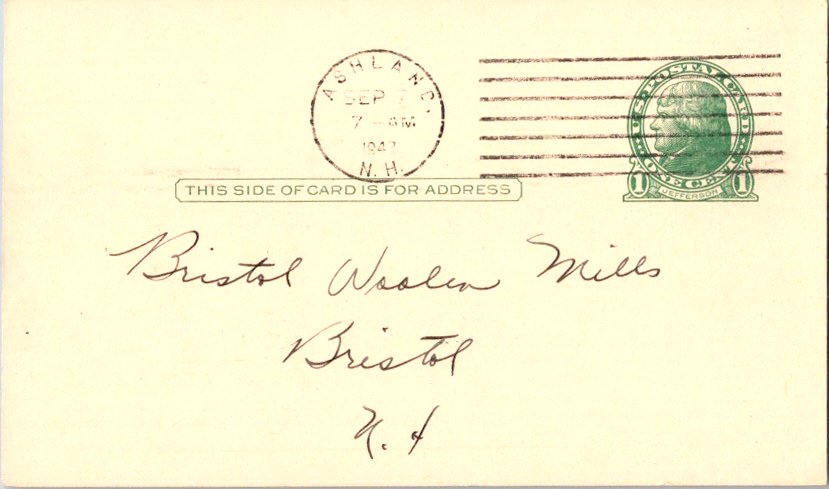 ASHLAND,
SEP 7
7 - AM
194
N.H.
U.S. POSTAL CARD
ONE CENT
1 JEFFERSON 1
THIS SIDE OF CARD IS FOR ADDRESS
Bristol Woolen Mills
Bristol
N. H